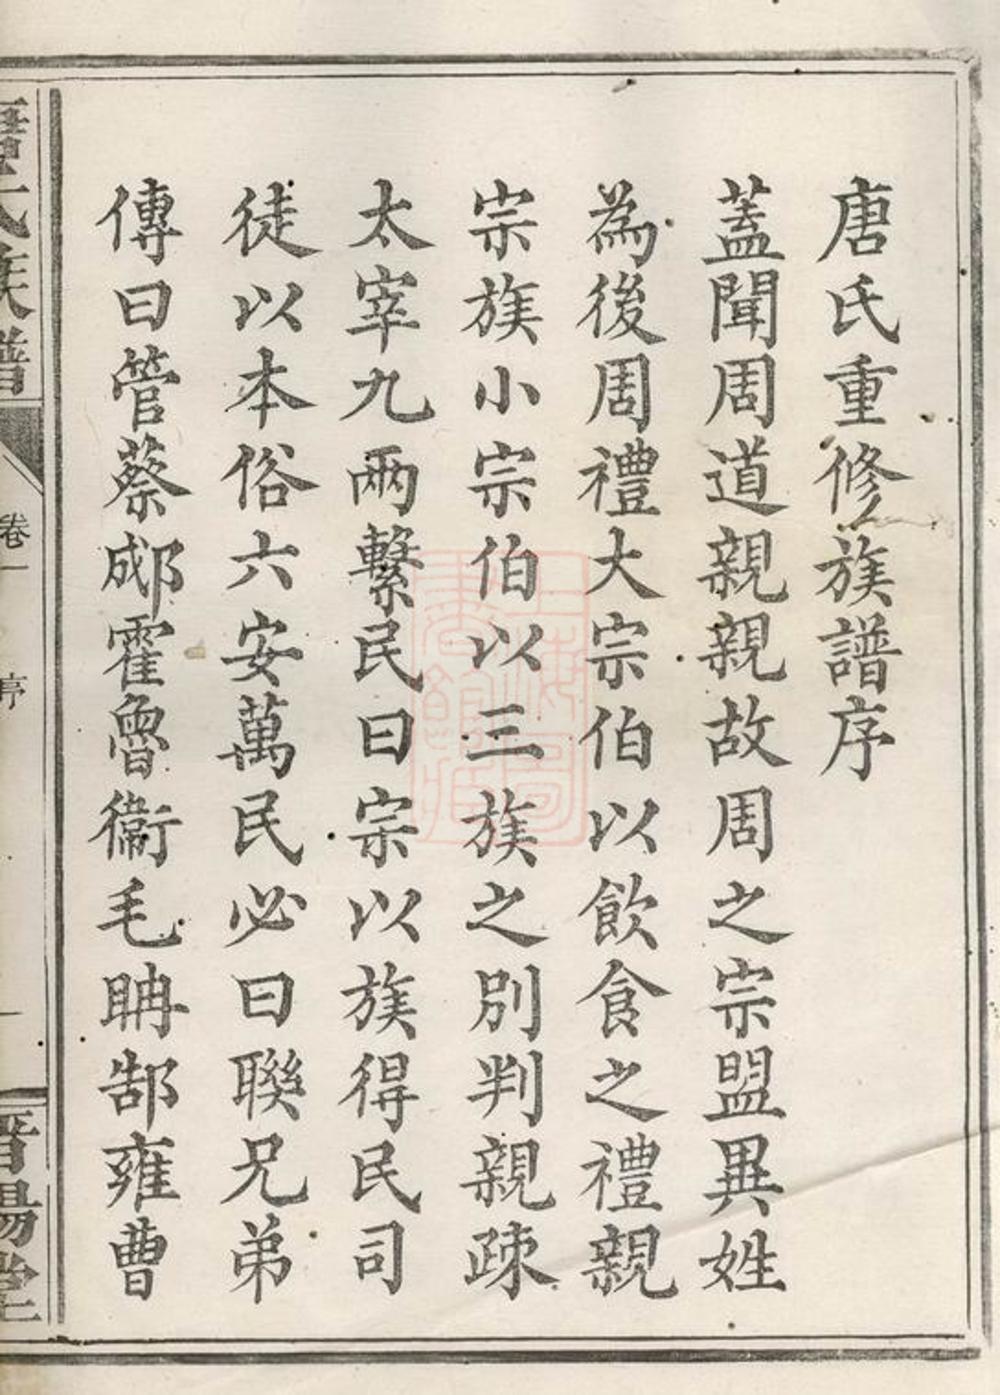 唐氏重修族譜序
蓋聞周道親親故周之宗盟異姓
為後周禮大宗伯以飲食之禮親
宗族小宗伯以三族之別判親疎
太宰九兩繫民曰宗以族得民司
徒以本俗六安萬民必曰聯兄弟
傳曰管蔡郕霍魯衞毛聃郜雍曹
氏族譜
卷一
序
一
晋陽堂